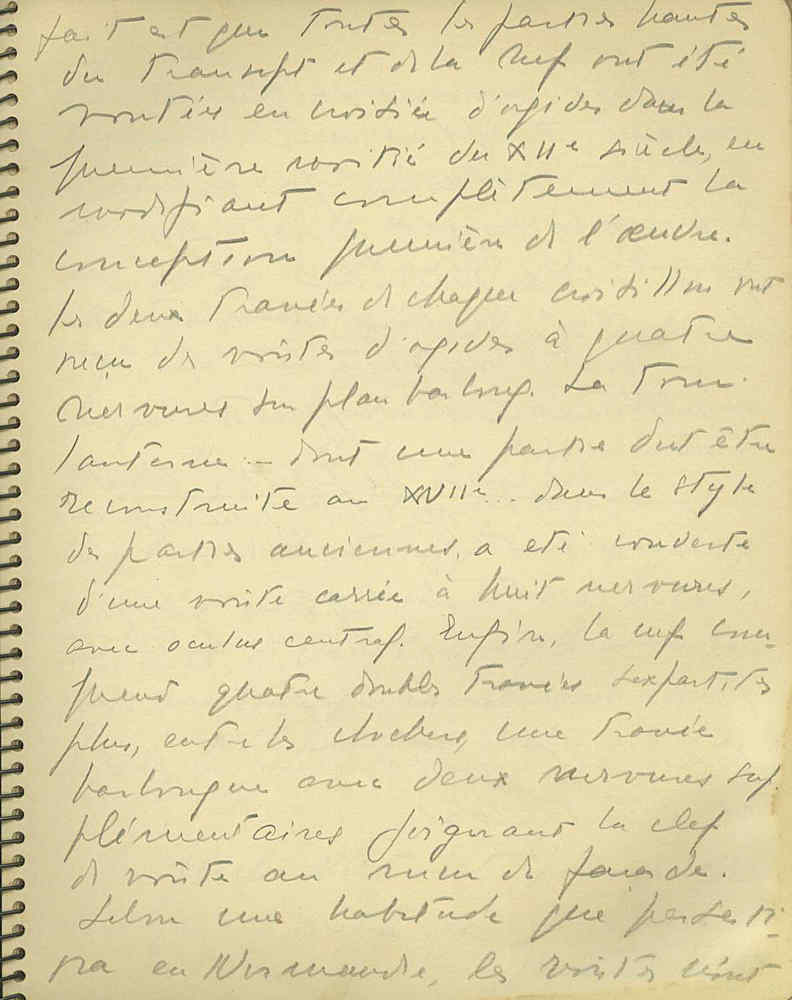 fait est que toutes les parties hautes
du transept et de la nef ont été
voutées en croisée d'ogives dans la
première moitié du XIIe siècle, en
modifiant complètement la
conception première de l'œuvre.
les deux travées de chaque croisillon ont
reçu des voûtes d'ogives à quatre
nervures sur plan barlong. La tour
lanterne – dont une partie dut être
reconstruite au XVIIe.. dans le style
des parties anciennes, a été couverte
d'une voûte carrée à huit nervures,
avec oculus central. Enfin, la nef com-
prend quatre doubles travées sexpartites
plus, entre les clochers, une travée
barlongue avec deux nervures sup
plémentaires joignant la clef
de voûte au mur de façade.
Selon une habitude qui persisti-
ra en Normandie, les voûtes n'ont